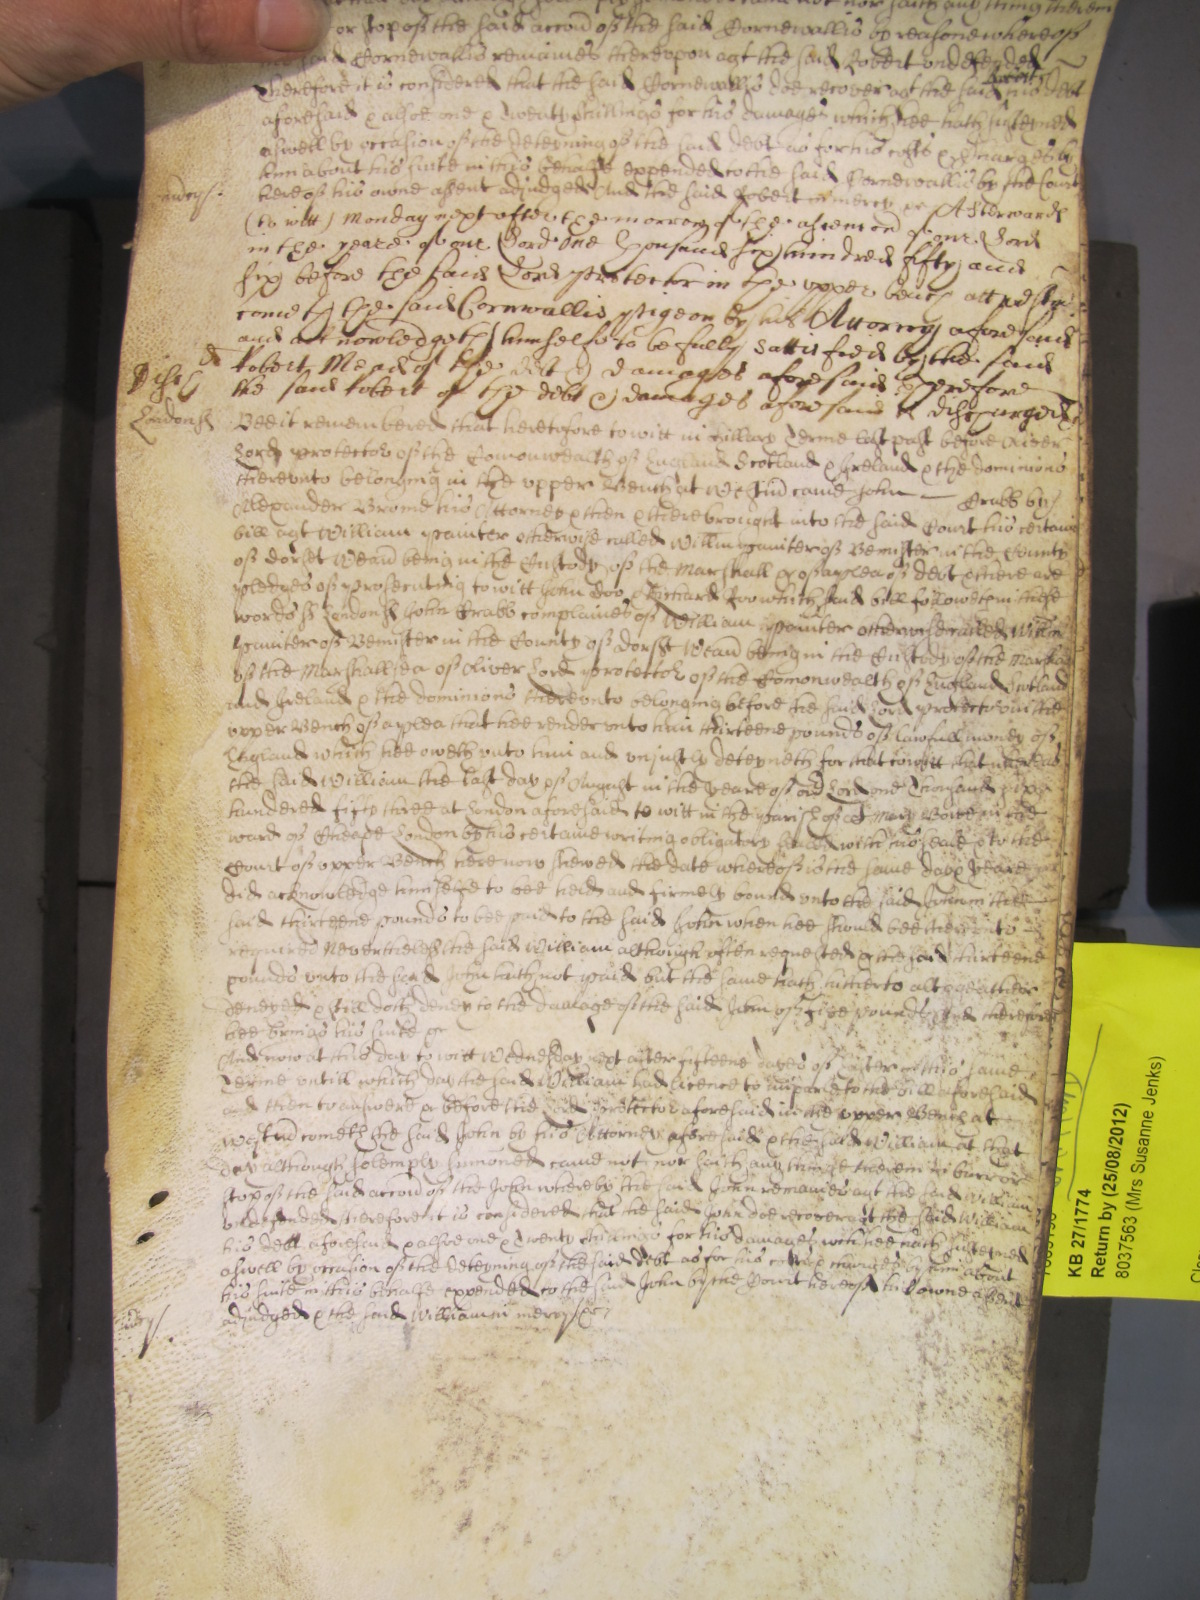 or stop of the said accon of the said Cornewallis by reason whereof
the said Cornewallis remaines thereupon agt the said Robert undefended
Therefore it is considered that the said Cornewallis doe recover agt the said Robert his debt
aforesaid & alsoe one & twenty shillings for his damages which hee hath susteyned
aswell by occasion of the deteyning of the said debt as for his costs & charges by
him about his suite in this behalfe expended to the said Cornewallis by the Court
here of his owne assent adjudged And the said Robert in mercy &c Afterwards
(to witt) Monday next after the morrow of the ascencon of our Lord
in the yeare of our Lord One thousand six hundred fifty and
six before the said Lord protector in the upper bench att Westmr
cometh the said Cornwallis Pigeon by his Attorney aforesaid
and acknowledgeth himselfe to be fully sattisfied by the said
Robert Mead of the debt & damages aforesaid Therefore
the said Robert of the debt & damages aforesaid is discharged
London ss Bee it remembered that heretofore to witt in Hillary Terme last past before Oliver
Lord Protector of the Comonwealth of England Scotland & Ireland & the dominions
thereunto belonging in the upper Bench at Westmr came John Crabb by
Alexander Brome his Attorney & then & there brought into the said Court his certaine
bill agt William Painter otherwise called Willm Painter of Bemister in the County
of Dorset Weavr being in the Custody of the Marshall &c of a plea of debt & there are
pledges of prosecuting to witt John Doo & Richard Roo which said bill followeth in these
words ss London ss John Crabb complaines of William Painter otherwise called Willm
Painter of Bemister in the County of Dorset Weavr being in the Custody of the Marshall
of the Marshallsea of Oliver Lord Protector of the Comonwealth of England Scotland
and Ireland & the dominions thereunto belonging before the said Lord Protector in the
upper Bench of a plea that hee render unto him thirteene pounds of lawfull money of
England which hee oweth unto him and unjustly deteyneth for that to witt that whereas
the said William the last day of August in the yeare of our Lord one Thousand six
hundered fifty three at London aforesaid to witt in the parish of St Mary Bowe in the
ward of Cheape London by his certaine writing obligatory sealed with his seale & to the
Court of upper Bench here now shewed the date whereof is the same day & yeare
did acknowledge himselfe to bee held and firmely bound unto the said John in the
said thirteene pounds to bee paid to the said John when hee should bee thereunto
required Neverthelesse the said William although often requested & the said thirteene
pounds unto the said John hath not paid but the same hath hitherto altogeather
denyed & still doth deny to the damage of the said John of five pounds And therefore
hee brings his suite &c
And now at this day to witt Wednesday next after fifteene dayes of Easter in this same
Terme untill which day the said William had licence to imparle to the bill aforesaid
and then to answere &c before the Lord Protector aforesaid in the upper Bench at
Westmr cometh the said John by his Attorney aforesaid & the said William at that
day although solemply sumoned came not nor saith any thinge therein in barr or
stop of the said accon of the John whereby the said John remaines agt the said William
undefended therefore it is considered that the said John doe recover agt the said William
his debt aforesaid & alsoe one & twenty shillings for his damages wch hee hath susteyned
aswell by occasion of the deteyning of the said debt as for his costs & charges by him about
his suite in this behalfe expended to the said John by the Court here of his owne assent
adjudged & the said William in mercy &c
KB 27/1774
Return by (25/08/2012)
8037563 (Mrs Susanne Jenks)